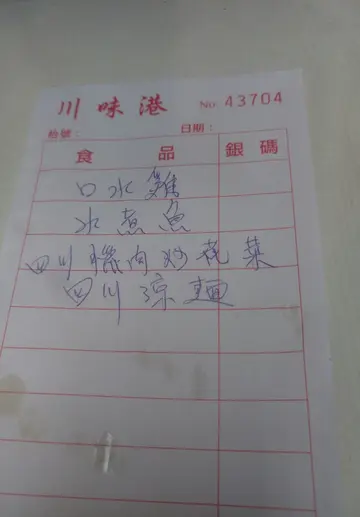 川味港 No. 43704
枱號： 日期：
食品 銀碼
口水雞
水煮魚
四川臘肉炒花菜
四川涼麵